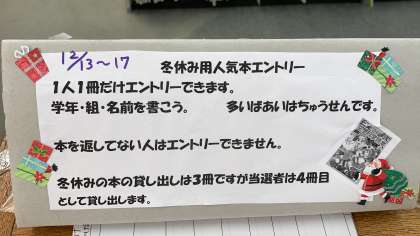 12/13～17
冬休み用人気本エントリー
1人1冊だけエントリーできます。
学年・組・名前を書こう。 多いばあいはちゅうせんです。
本を返してない人はエントリーできません。
冬休みの本の貸し出しは3冊ですが当選者は4冊目
として貸し出します。